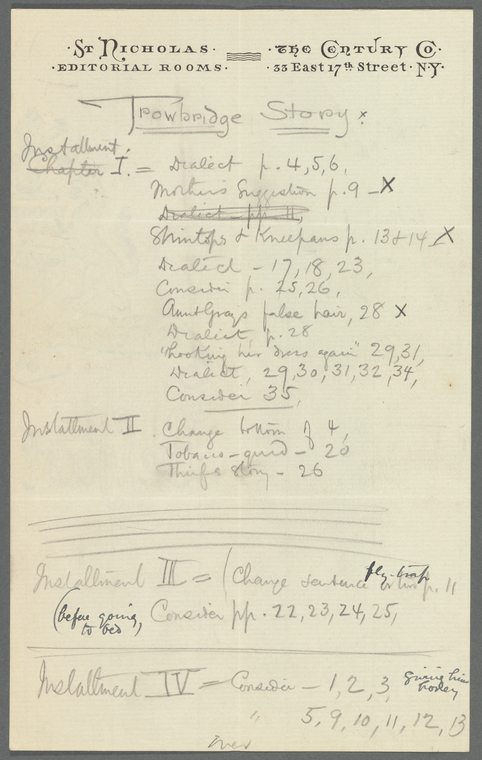 ·ST NICHOLAS· ·THE CENTURY CO·
·EDITORIAL ROOMS· ·33 East 17th Street·N·Y·
Trowbridge Story
Installment.
Chapter I. = Dialect p. 4, 5, 6,
Mothers Suggestion p. 9 – X
Dialect pp. 11,
Shintops & Kneepans p. 13 & 14 X
Dialect – 17, 18, 23,
Consider p. 25, 26,
Aunt Grays false hair, 28 X
Dialect, p. 28
"hooking her dress again" 29, 31,
Dialect, 29, 30, 31, 32, 34,
Consider 35,
Installment II. Change bottom of 4,
Tobacco-quid – 20
Thief's Story – 26
Installment III = (Change sentence fly-trap p. 11
(before going to bed) Consider pp. 22, 23, 24, 25,
Installment IV = Consider – 1, 2, 3, giving him
" 5, 9, 10, 11, 12, 13
over